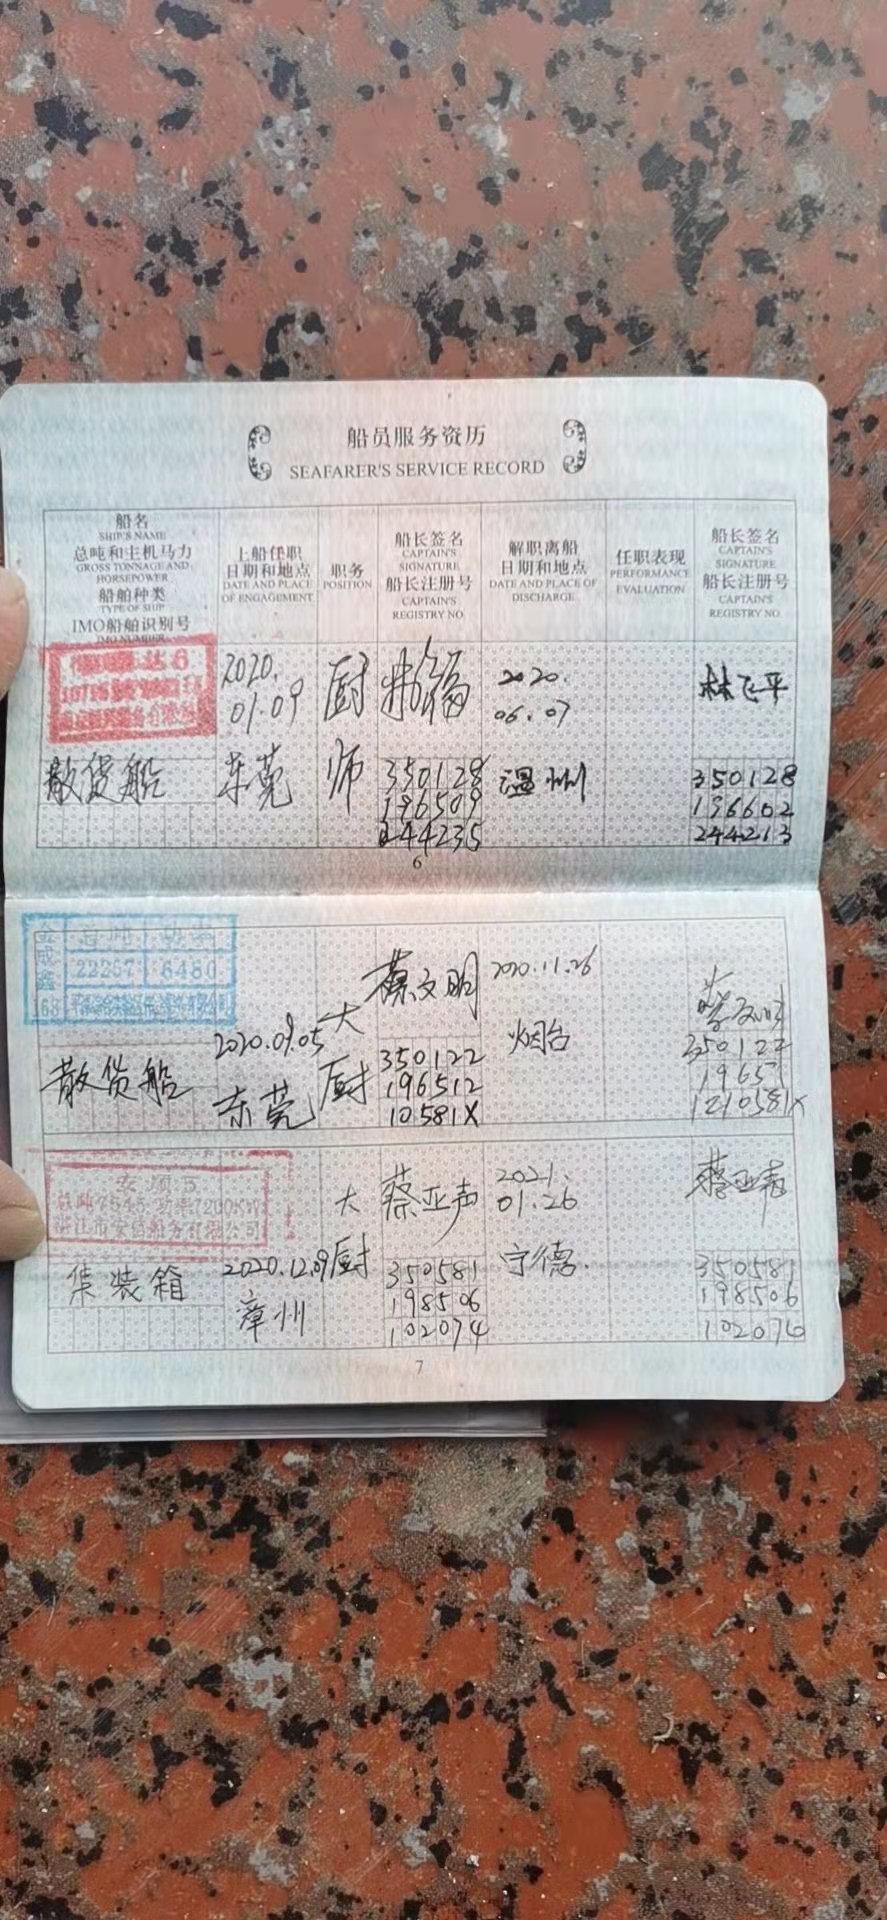 船员服务资历
SEAFARER'S SERVICE RECORD
船名
SHIP'S NAME
总吨和主机马力
GROSS TONNAGE AND
HORSEPOWER
船舶种类
TYPE OF SHIP
IMO船舶识别号
IMO NUMBER
上船任职
日期和地点
DATE AND PLACE
OF ENGAGEMENT
职务
POSITION
船长签名
CAPTAIN'S
SIGNATURE
船长注册号
CAPTAIN'S
REGISTRY NO.
解职离船
日期和地点
DATE AND PLACE OF
DISCHARGE
任职表现
PERFORMANCE
EVALUATION
船长签名
CAPTAIN'S
SIGNATURE
船长注册号
CAPTAIN'S
REGISTRY NO.
达6
散货船
2020.
01.09
东莞
厨
师
350128
196509
244235
2020.
06.07
温州
林飞平
350128
196602
244213
6
金成鑫
168
总吨 功率
22287 6480
散货船
2020.09.05
东莞
大
厨
蔡文明
350122
196512
10581X
2020.11.26
烟台
350122
1965
1210581X
安顺5
总吨7545 功率1200KW
湛江市安信船务有限公司
集装箱
2020.12.09
漳州
大
厨
蔡亚声
350581
198506
102074
2021.
01.26
宁德.
蔡亚声
350581
198506
102074
7